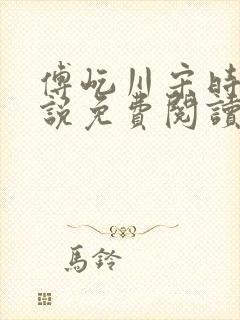 傅屹川宋時
說免費閱讀
馬鈴